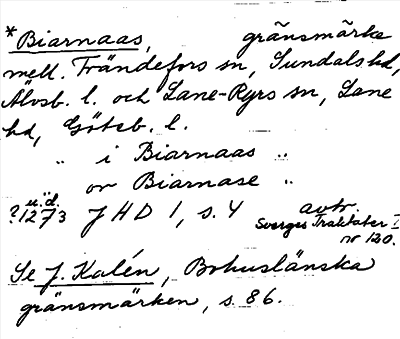 *Biarnaas, gränsmärke
mell. Frändefors sn, Sundals hd,
Älvsb. l. och Lane-Ryrs sn, Lane
hd, Göteb. l.
" i Biarnaas "
" or Biarnase "
u.d.
?1273 JHD 1, s. 4 avtr.
Sverges Traktater I
nr 120.
Se J. Kalén, Bohuslänska
gränsmärken, s. 86.